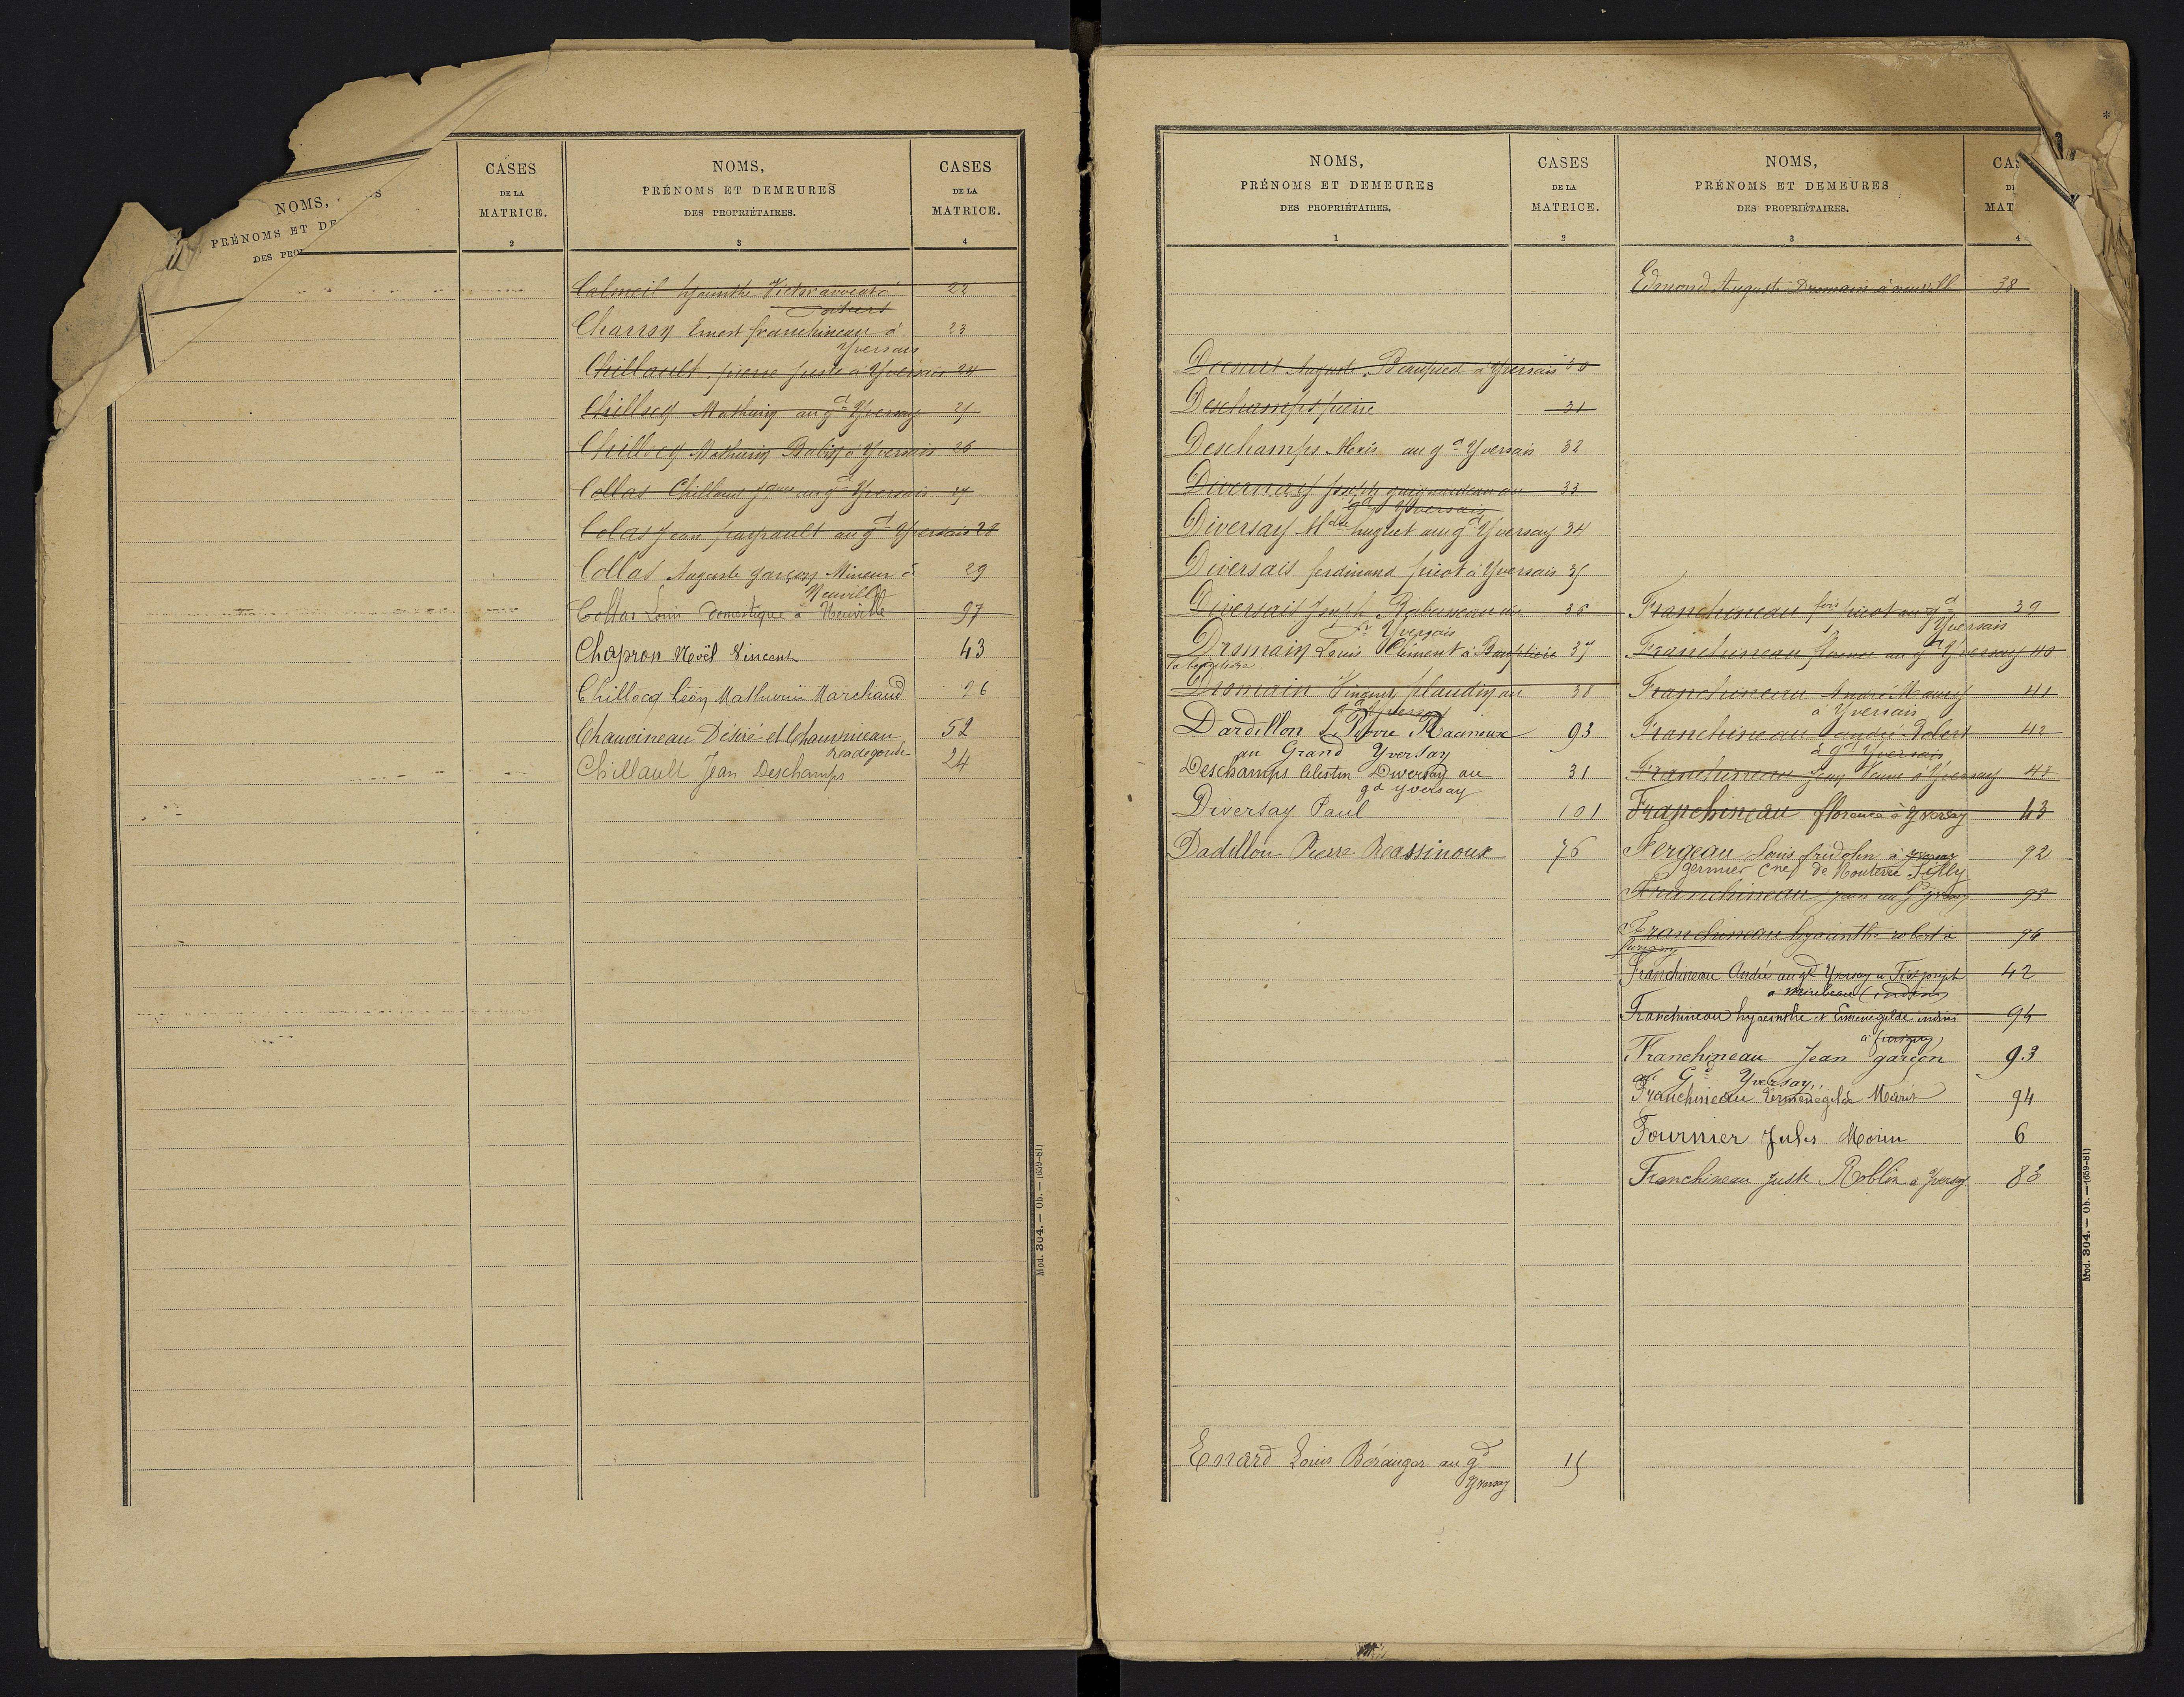 NOMS,
PRÉNOMS ET DE
DES PRO
CASES
DE LA
MATRICE.
2
NOMS,
PRÉNOMS ET DEMEURES
DES PROPRIÉTAIRES.
3
CASES
DE LA
MATRICE.
4
Calmeil hyacinthe Victor avocat à 22
Poitiers
Charron Ernest franchineau à 23
Yversais
Chillault pierre juste à Yversais 24
Chillocq Mathurin au gd Yversay 25
Chillocq Mathurin Babin à Yversais 26
Collas Chillault au gd Yversais 27
Colas Jean au gd Yversais 28
Collas Auguste garçon Mineur à 29
Neuville
Collas Louis domestique à Neuville 97
Chapron Noël Vincent 43
Chillocq Léon Mathurin Marchand 26
Chauvineau Désiré et Chauvineau 52
Radegonde
Chillault Jean Deschamps 24
Mod. 304. — Ob. — (659-81)
NOMS,
PRÉNOMS ET DEMEURES
DES PROPRIÉTAIRES.
1
CASES
DE LA
MATRICE.
2
Auguste Beaupied à Yversais 30
Deschamps pierre 31
Deschamps Alexis au gd Yversais 32
Divernay Joseph au 33
gd Yversais
Diversay Mdle huguet au gd Yversay 34
Diversais ferdinand picot à Yversais 35
Diversais Joseph au 36
Yversais
Dromain Louis Clément à 37
Dromain Vincent plaudin au 38
gd Yversay
Dardillon Pierre 93
au Grand Yversay
Deschamps Célestin Diversay au 31
gd Yversay
Diversay Paul 101
Dadillon Pierre Reassinoux 76
Enard Louis Béranger au gd 15
Yversay
NOMS,
PRÉNOMS ET DEMEURES
DES PROPRIÉTAIRES.
3
CAS
D
MAT
4
Edmond Auguste Dromain à neuville 38
Franchineau fois picot au gd 39
Yversais
Franchineau florence au gd Yversay 40
Franchineau André Maury 41
à Yversais
Franchineau andré Robert 42
à gd Yversais
Franchineau Jean à Yversay 43
Franchineau florence à Yversay 43
Fergeau Louis fridolin à Yversay 92
germier cne de Mouterre Silly
Franchineau jean au gd Yversay 93
Franchineau hyacinthe robert à 94
furigny
Franchineau André au gd Yversay et joseph 42
à Mirebeau (indivis)
Franchineau hyacinthe et Ermenegilde indivis 94
à furigny
Franchineau Jean garçon 93
au Gd Yversay
Franchineau Ermenegilde Marit 94
Fournier Jules Morin 6
Franchineau Juste Roblin à Yversay 83
Mod. 304. — Ob. — (659-81)